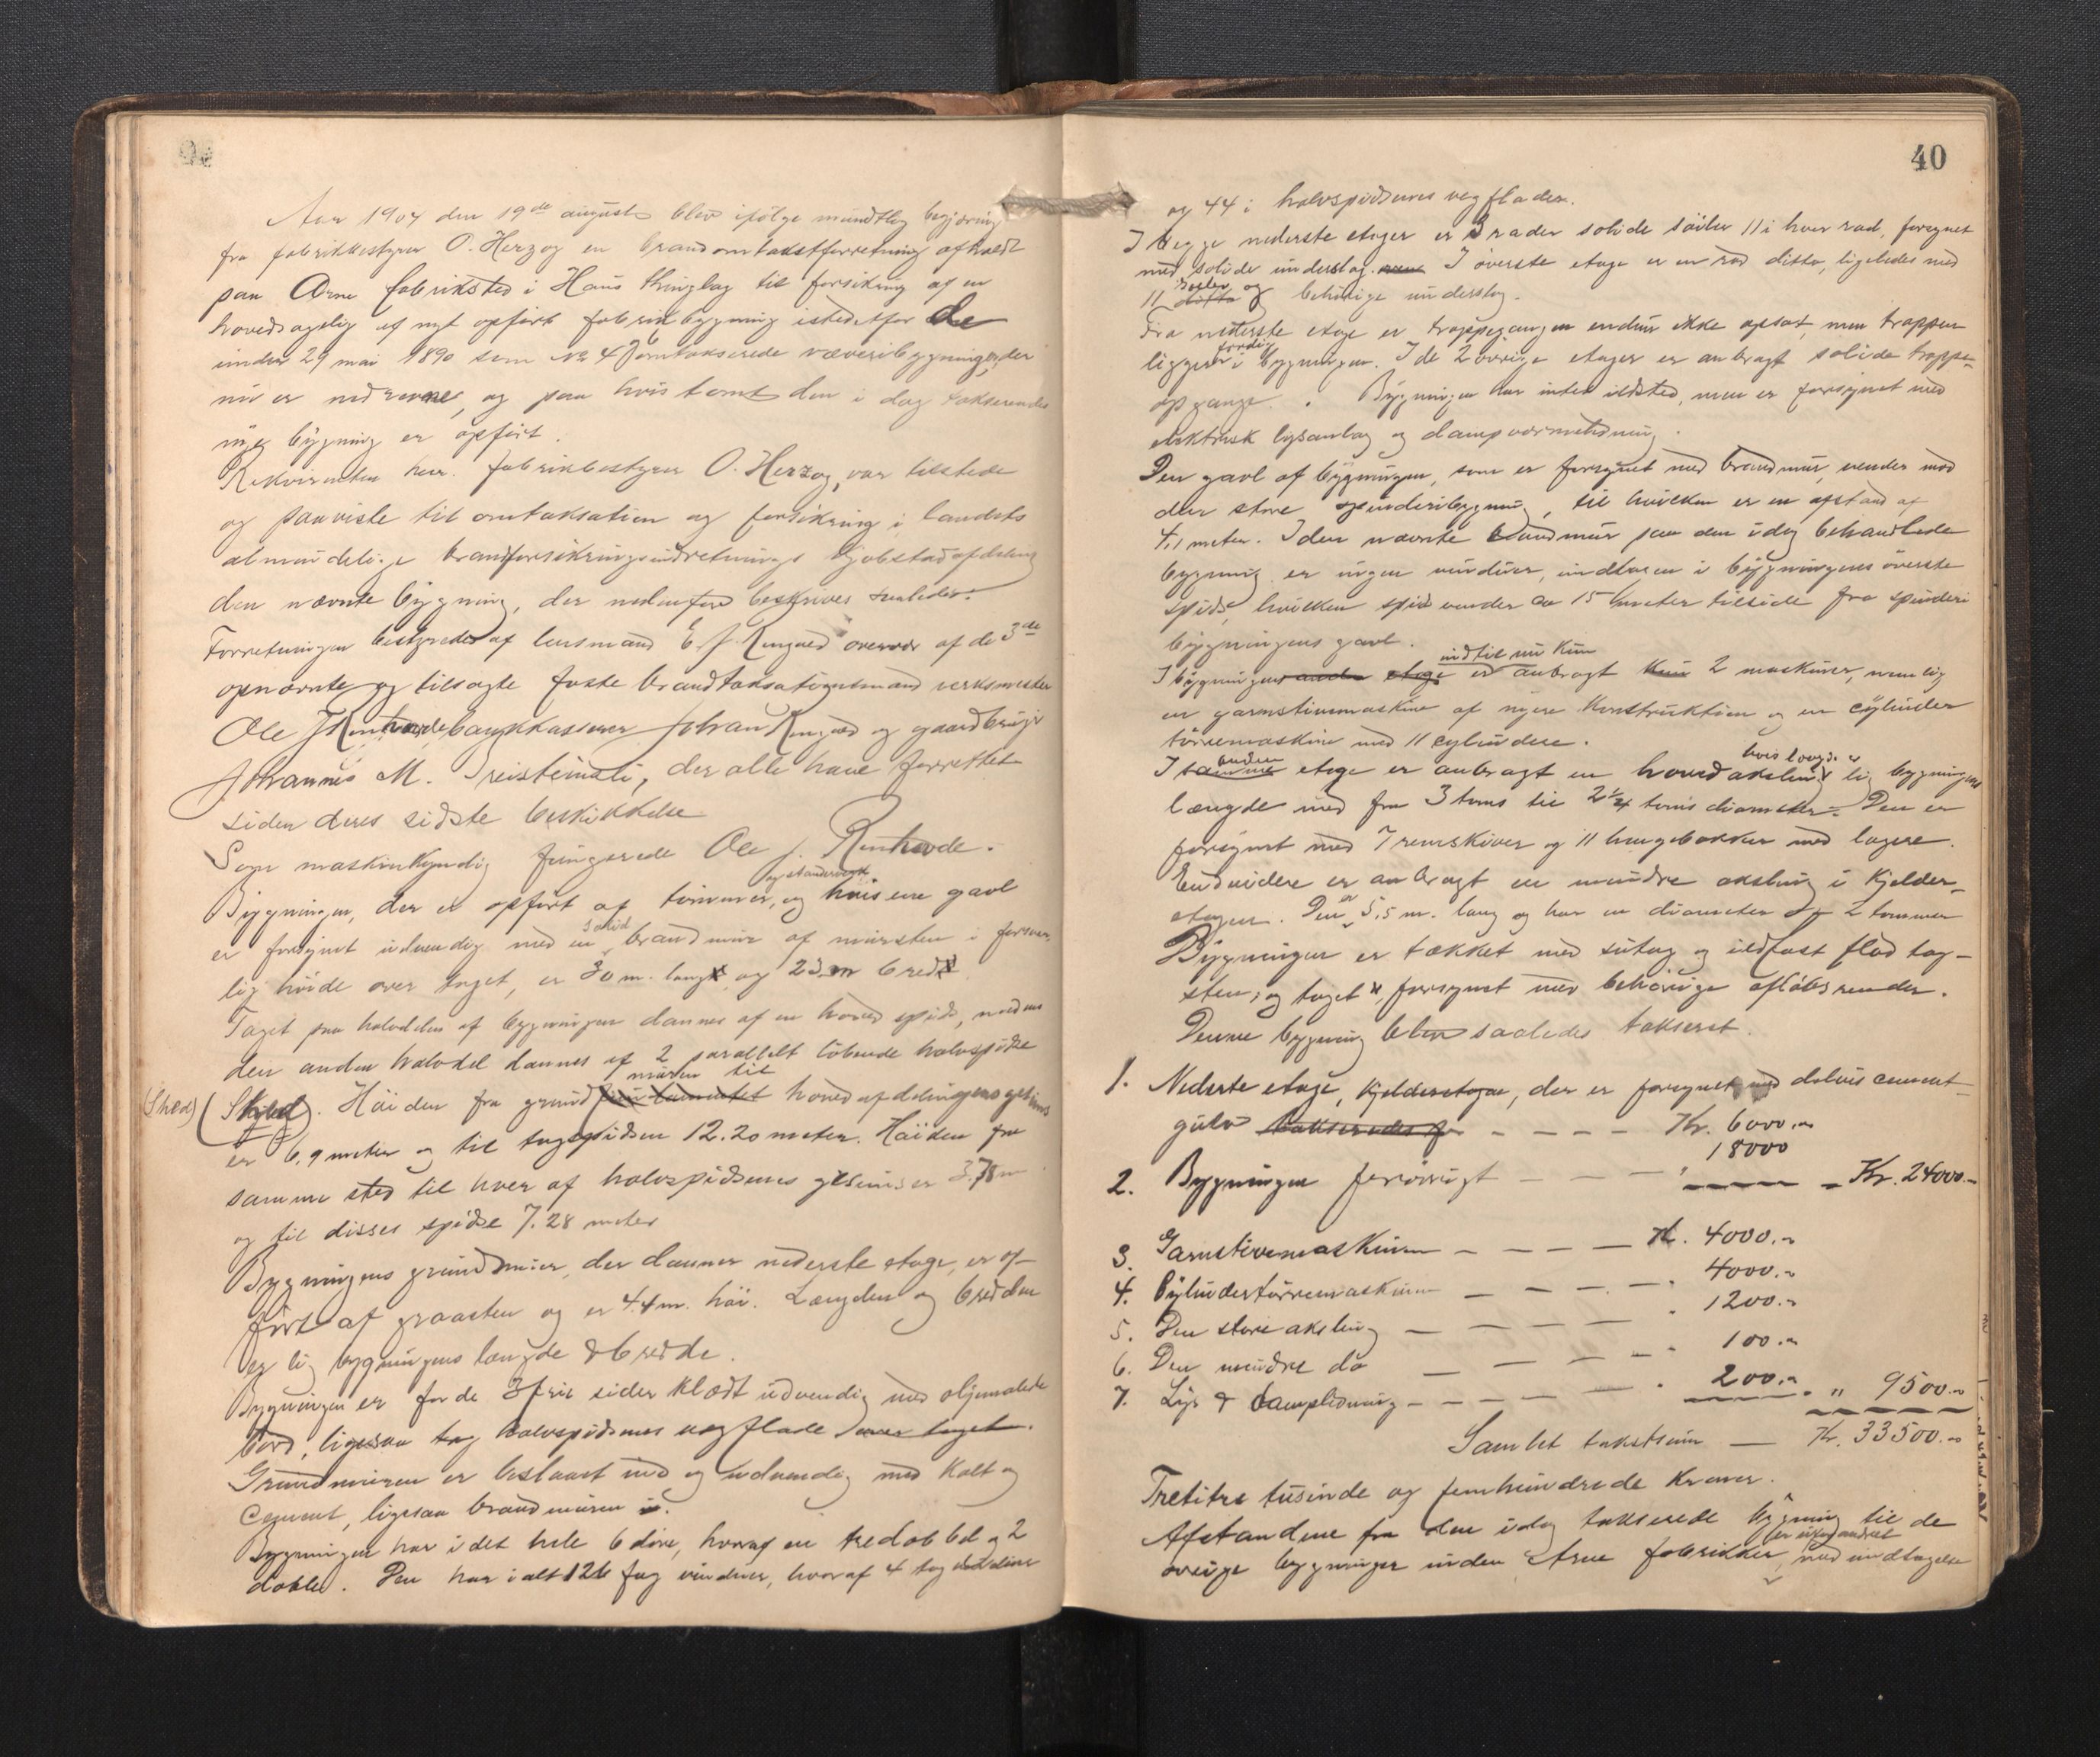 Aar 1904 den 19de august blev ifölge mundtlig begjæring
fra fabrikbestyrer O. Herzog en brandomtakstforretning afholdt
paa Arne fabriksted i Haus thinglag til forsikring af en
hovedsagelig af nyt opfört fabrikbygning istedetfor de
under 29 mai 1890 som No 4 omtakserede væveribygninger, der
nu er nedrevne, og paa hvis tomt den i dag takserende
nye bygning er opfört.
Rekvirenten herr fabrikbestyrer O. Herzog, var tilstede
og paaviste til omtaksation og forsikring i landets
almindelige brandforsikringsindretnings kjöbstadafdeling
den nævnte bygning, der nedenfore beskrives saaledes:
Forretningen bestyredes af lensmand E J overvær af de 3de
opnævnte og tilsagte faste brandtaksationsmænd verksmester
Ole J Runhovde bankkasserer Johan og gaardbruger
Johannes M. Treisteinsli, der alle have forrettet
siden deres sidste beskikkelse
Som maskinkyndig fungerede Ole J. Runhovde.
og standerverk
Bygningen, der er opfört af tömmer, og hvis ene gavl
solid
er forsynet udvendig med en brandmur af mursten i forsvar
lig höide over taget, er 30 m. lang og 23 m bred
Taget paa halvdelen af bygningen dannes af en hoved spids, medens
den anden halvdel dannes af 2 parallelt löbende halvspidse
muren til
(Shed) (Sched). Höiden fra grundfundamentet hovedafdelingens gesims
er 6,9 meter og til tagspidsen 12.20 meter. Höiden fra
samme sted til hver af halvspidsenes gesimser 3,78 m
og til disses spidse 7.28 meter
Bygningens grundmur, der danner nederste etage, er op-
fört af graasten og er 4.4 m. höi. Længden og bredden
er lig bygningens længde & bredde.
Bygningen er for de 3 frie sider klædt udvendig med oljemalede
bord, ligesaa tag halvspidsenes vegflade over taget.
Grundmuren er beslaaet ind og udvendig med kalk og
cement, ligesaa brandmuren
Bygningen har i det hele 6 döre, hvoraf en tredobbel og 2
doble. Den har ialt 126 fag vinduer, hvoraf 4 fag
40
og 44 i halvspidsenes vegflader.
I begge nederste etager er 3 rader solide söiler 11 i hver rad, forsynet
med solide underslag. I överste etage er en rad ditto, ligeledes med
söiler og
11 ditto behörige underslag.
Fra nederste etage er trappegangen endnu ikke opsat, men trappen
færdig
ligger i bygningen. I de 2 övrige etager er anbragt solide trappe-
opgange. Bygningen har intet ildsted, men er forsynet med
elektrisk lysanlæg og dampvarmeledning.
Den gavl af bygningen, som er forsynet med brandmur, vender mod
den store spinderibygning, til hvilken er en afstand af
4,1 meter. I den nævnte brandmur paa den idag behandlede
bygning er ingen vinduer, undtagen i bygningens överste
spids, hvilken spids vender ca 15 meter tilside fra spinderi
bygningens gavl.
indtil nu kun
I bygningens anden etage er anbragt kun 2 maskiner, nemlig
en garnstivemaskine af nyere konstruktion og en cylinder
törremaskine med 11 cylindere.
anden hvis længde er
I samme etage er anbragt en hovedaksling lig bygningens
længde med fra 3 toms til 2 1/4 toms diameter. Den er
forsynet med 7 remskiver og 11 hengebokker med lagere.
Endvidere er anbragt en mindre aksling i kjelder-
er
etagen. Den 5,5 m. lang og har en diameter af 2 tommer
Bygningen er tækket med sutag og ildfast flad tag-
sten, og taget forsynet med behörige aflöbsrender.
Denne bygning blev saaledes takseret.
1. Nederste etage, kjelderetage, der er forsynet med delvis cement-
gulv takseredes for - - - - - Kr. 6000.-
2. Bygningen forövrigt - - - " 18000 - Kr. 24000.-
3. Garnstivemaskinen - - - - Kr. 4000.-
4. Cylindertörremaskinen - - - - " 4000.-
5. Den store aksling - - - - " 1200.-
6. Den mindre do - - - - " 100.-
7. Lys & dampledning - - - - " 200.- " 9500.-
Samlet takstsum - Kr. 33500.-
Tretitre tusinde og femhundrede kroner.
Afstandene fra den idag takserede bygning til de
er uforandret
övrige bygninger inden Arne fabrikker, med undtagelse